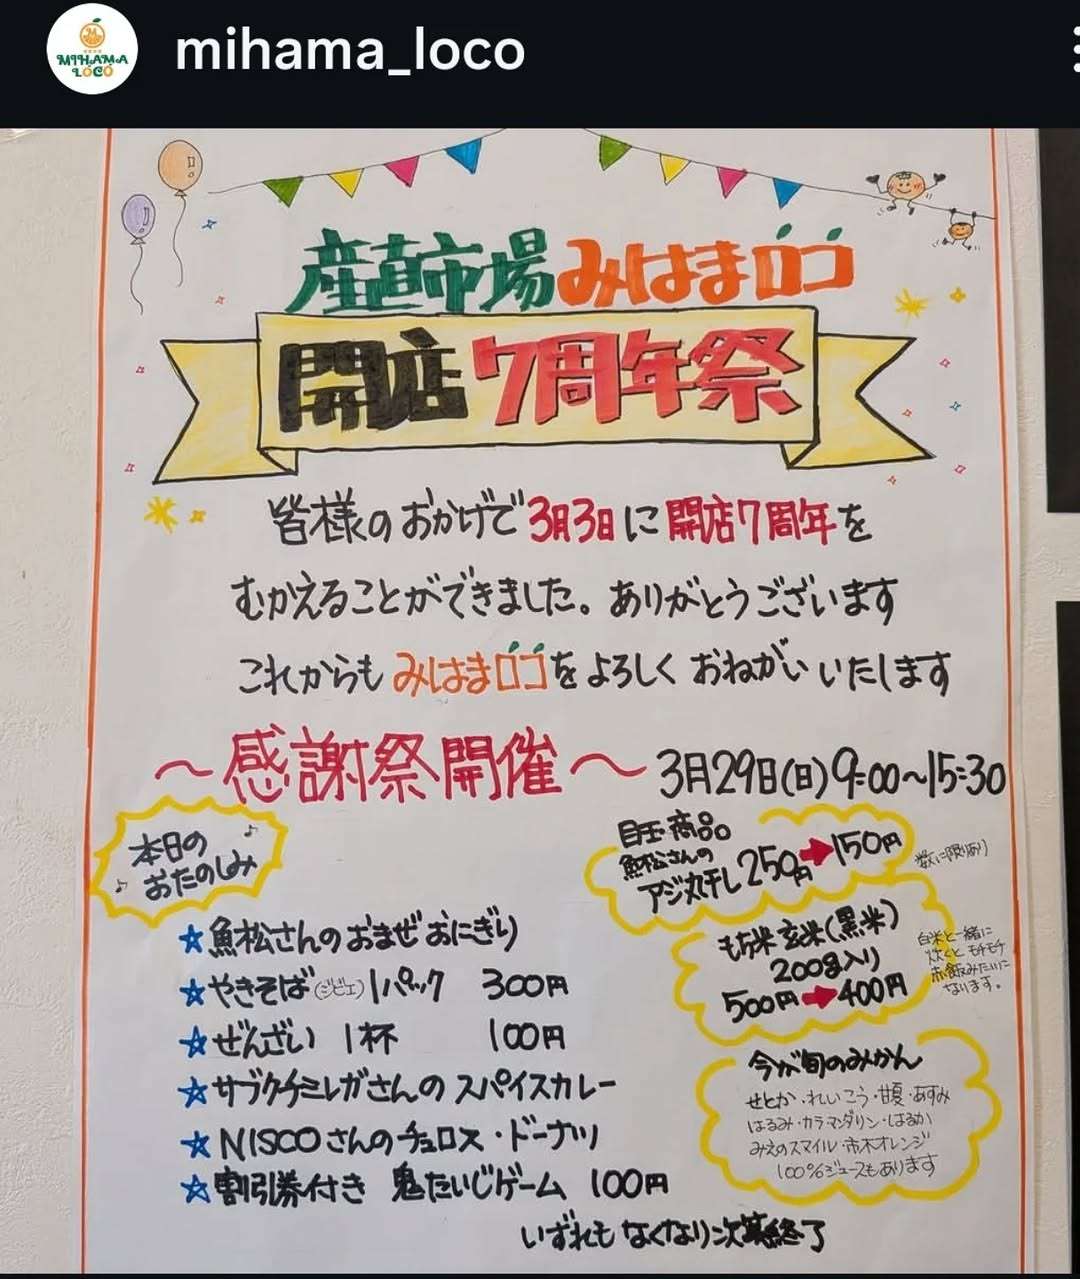 mihama_loco
MIHAMA
LOCO
産直市場みはまロコ
開店7周年祭
皆様のおかげで3月3日に開店7周年を
むかえることができました。ありがとうございます
これからもみはまロコをよろしくおねがいいたします
～感謝祭開催～ 3月29日(日)9:00～15:30
本日の
おたのしみ
☆魚松さんのおまぜおにぎり
☆やきそば(ジビエ)1パック 300円
☆ぜんざい 1杯 100円
☆サブクチミレガさんのスパイスカレー
☆NISCOさんのチュロス・ドーナツ
☆割引券付き 鬼たいじゲーム 100円
目玉商品
魚松さんの
アジ丸干し250円➡150円
数に限りあり
もち米玄米(黒米)
200g入り
500円➡400円
白米と一緒に
炊くとモチモチ
赤飯みたいに
なります。
今が旬のみかん
せとか・れいこう・甘夏・あすみ
はるみ・カラマンダリン・はるか
みえのスマイル・市木オレンジ
100%ジュースもあります
いずれもなくなり次第終了